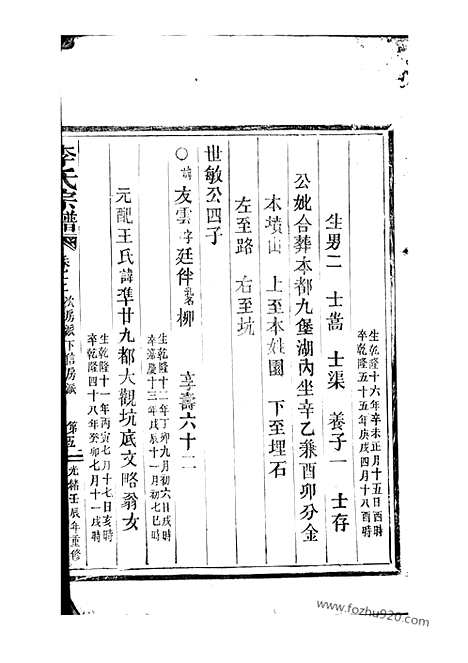 生乾隆十六年辛未正月十五日酉時
卒乾隆五十五年庚戌四月十八酉時
生男二 士蒿 士渠 養子一 士存
公妣合葬本都九堡湖內坐辛乙兼酉卯分金
木墳山 上至本姓園 下至埋石
左至路 右至坑
世敏公四子
○諱友雲字廷伴乳名柳 享壽六十二
生乾隆十二年丁卯九月初六日戌時
卒嘉慶十三年戊辰十一月初七巳時
元配王氏諱準廿九都大觀坑底文略翁女
生乾隆十一年丙寅七月十七日亥時
卒乾隆四十八年癸卯七月十一戌時
李氏宗譜 卷 次房派下信房派 第五 光緒壬辰年重修
www.fozhu920.com